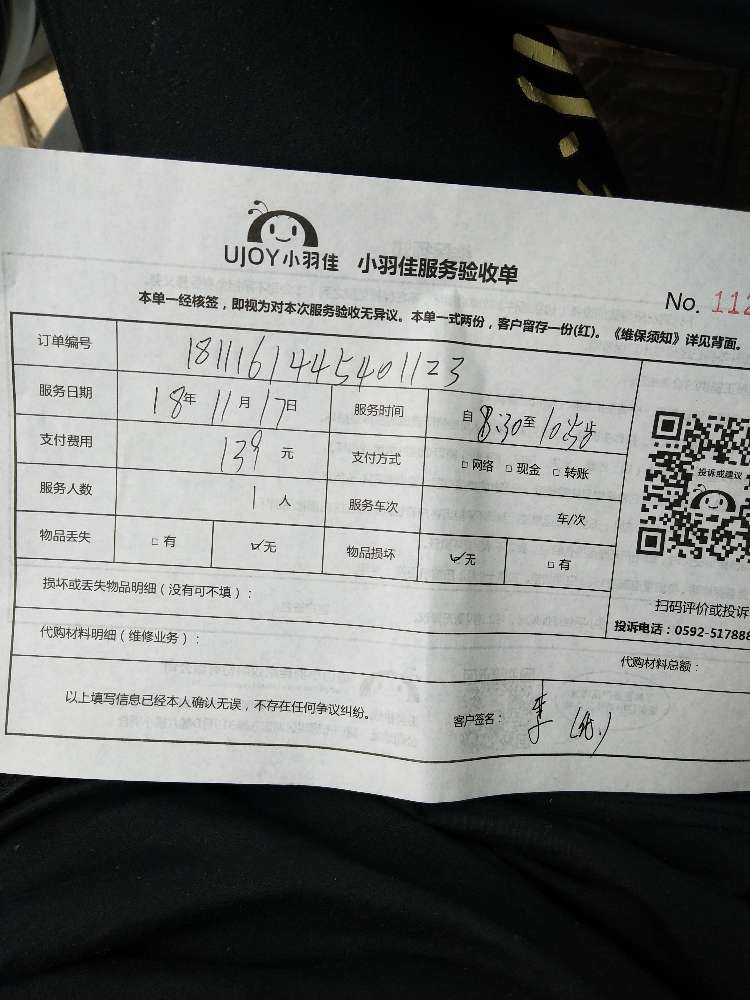 UJOY小羽佳 小羽佳服务验收单
No. 112
本单一经核签，即视为对本次服务验收无异议。本单一式两份，客户留存一份(红)。《维保须知》详见背面。
订单编号 1811161445401123
服务日期 18年 11月 17日 服务时间 自 8:30 至
支付费用 139 元 支付方式 □网络 □现金 □转账
服务人数 1 人 服务车次 车/次
物品丢失 □有 ☑无 物品损坏 ☑无 □有
投诉或建议
损坏或丢失物品明细（没有可不填）：
扫码评价或投诉
投诉电话：0592-517888
代购材料明细（维修业务）： 代购材料总额：
以上填写信息已经本人确认无误，不存在任何争议纠纷。 客户签名： 李